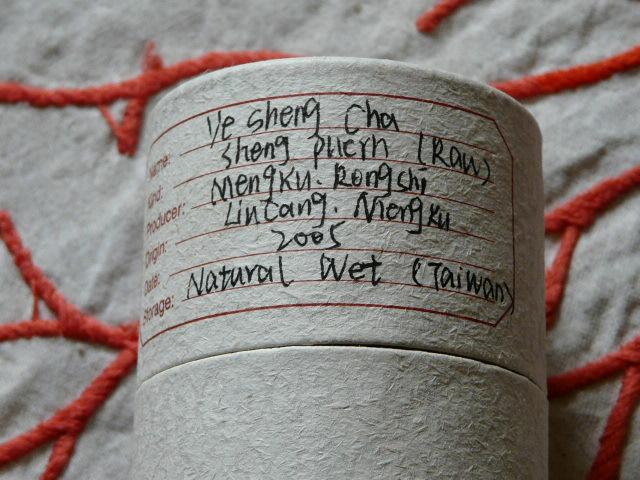 Name: Ye sheng Cha
Kind: Sheng Puerh (Raw)
Producer: Mengku. Rongshi
Origin: Lincang. Mengku
Date: 2005
Storage: Natural Wet (Taiwan)